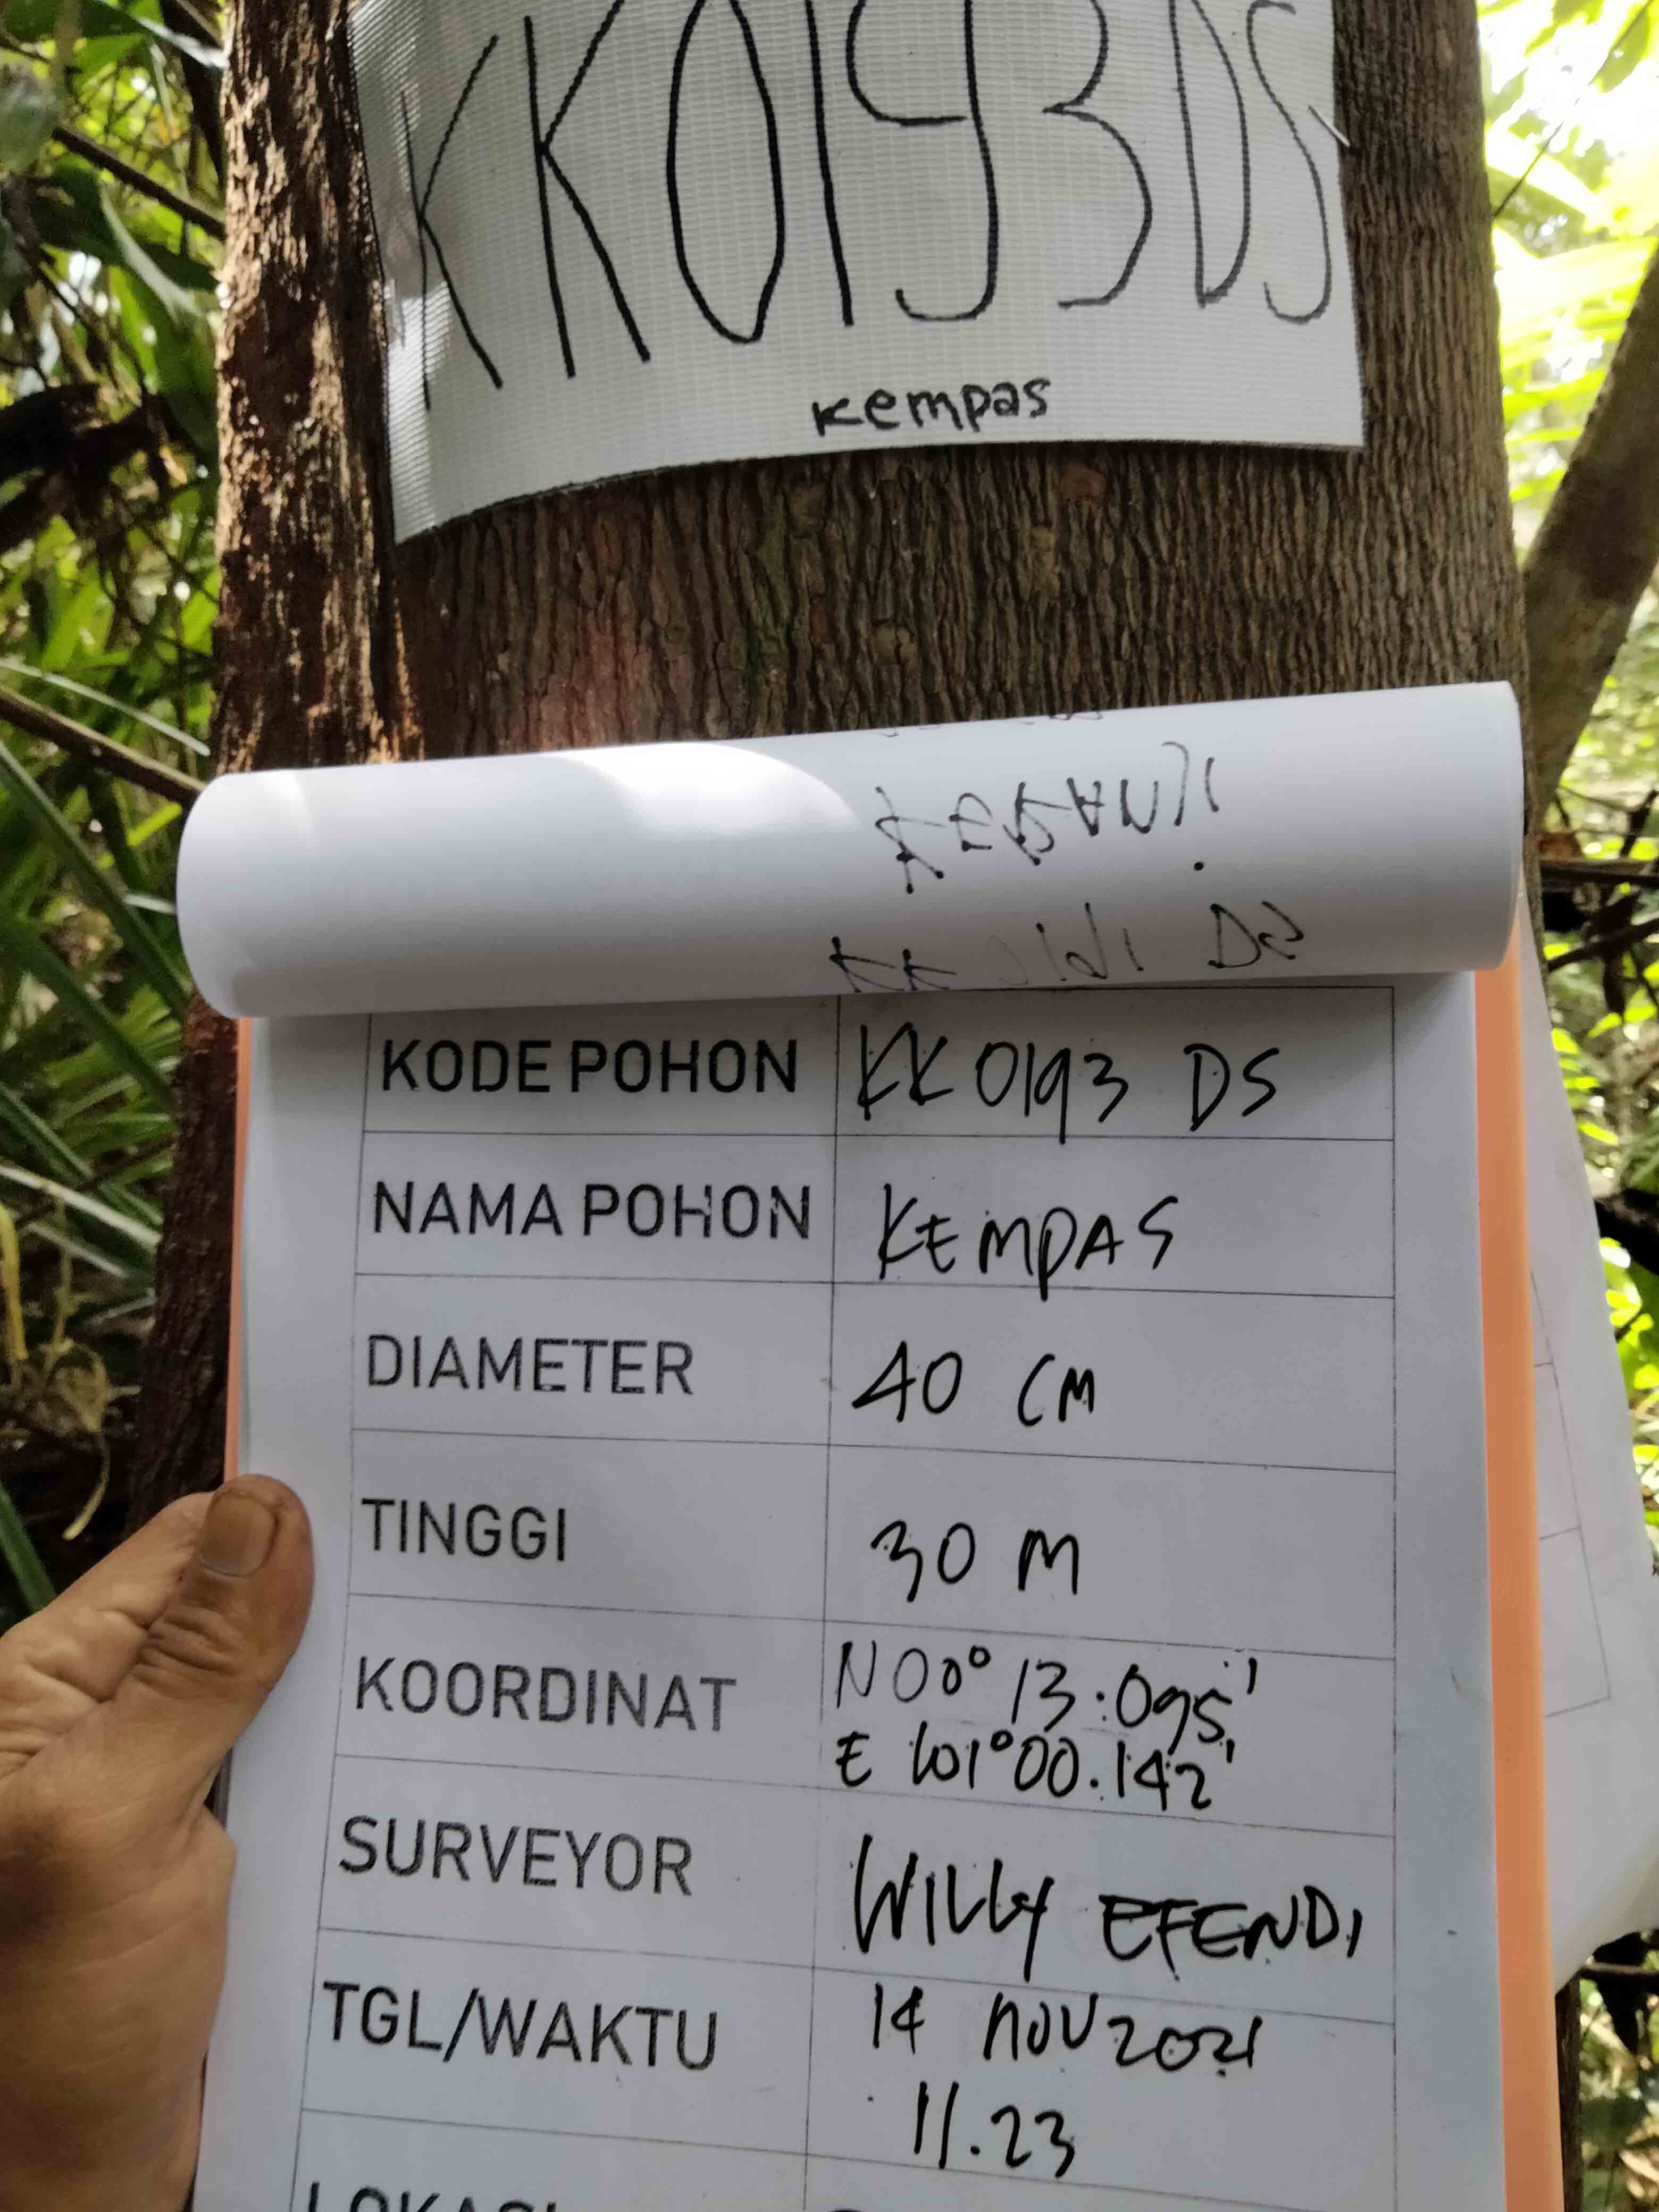 KK0193DS
Kempas
KODE POHON KK 0193 DS
NAMA POHON KEMPAS
DIAMETER 40 CM
TINGGI 30 M
KOORDINAT N 00° 13.095'
E 101°00.142'
SURVEYOR WILLY EFENDI
TGL/WAKTU 14 NOV 2021
11.23
LOKASI